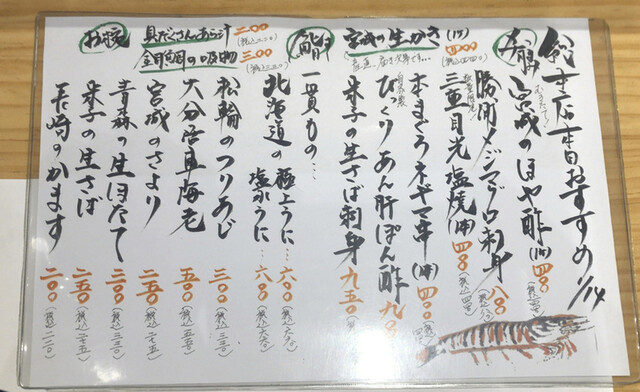 銚子店本日おすすめ 1/14
宮城のほや酢(小) 四八〇
勝浦メジマグロ刺身 八八〇
三重目光塩焼(1本) 四八〇
本まぐろネギマ串(1本) 四〇〇
びっくりあん肝ぽん酢 九八〇
米子の生さば刺身 九五〇
宮城の生かき(1ケ) 四〇〇
(税込四四〇)
鮨
一貫もの…
北海道の極上うに… 六〇〇(税込六六〇)
塩水うに… 六〇〇(税込六六〇)
松輪のつりあじ 三〇〇(税込三三〇)
大分活車海老 五〇〇(税込五五〇)
宮城のさより 二五〇(税込二七五)
青森の生ほたて 三〇〇(税込三三〇)
米子の生さば 二五〇(税込二七五)
長崎のかます 二〇〇(税込二二〇)
お椀
具だくさんあら汁 二〇〇
(税込二二〇)
金目鯛の吸物 三〇〇
(税込三三〇)